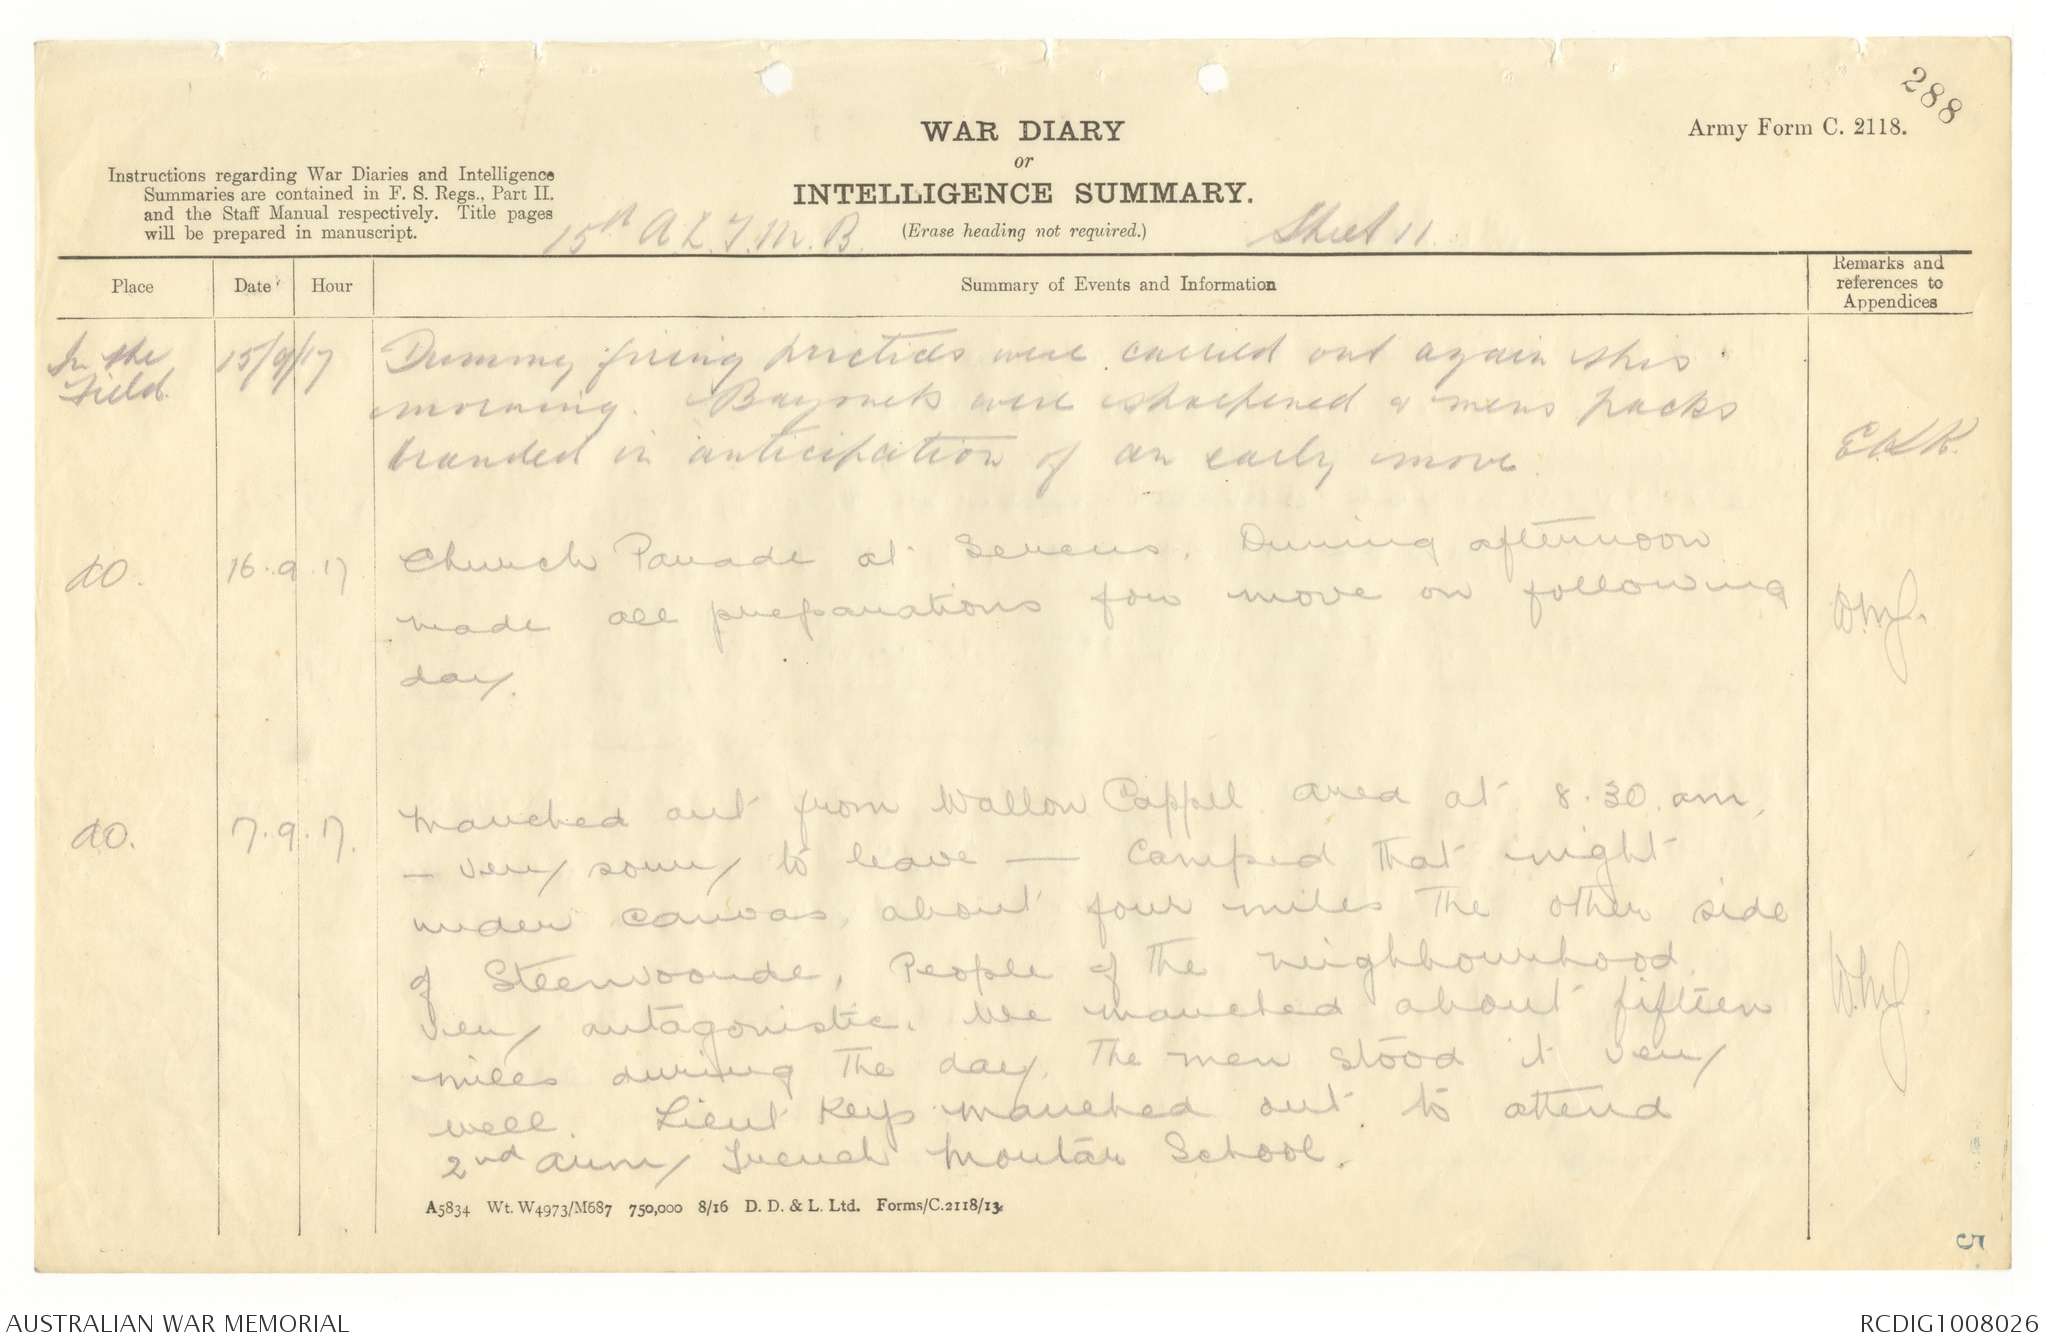 288
Army Form C. 2118.
WAR DIARY
or
INTELLIGENCE SUMMARY.
(Erase heading not required.)
Instructions regarding War Diaries and Intelligence
Summaries are contained in F. S. Regs., Part II.
and the Staff Manual respectively. Title pages
will be prepared in manuscript.
15th A L. T. M. B. Sheet 11.
Place Date Hour Summary of Events and Information Remarks and references to Appendices
In the Field. 15/9/17 Dummy firing practices were carried out again this
morning. Bayonets were sharpened & mens packs
branded in anticipation of an early move.
do. 16.9.17 Church Parade at Sercus. During afternoon
made all preparations for move on following
day.
do. 7.9.17. Marched out from Wallon Cappel area at 8.30. am,
— very sorry to leave — camped that night
under canvas, about four miles the other side
of Steenvoorde. People of the neighbourhood
very antagonistic. We marched about fifteen
miles during the day. The men stood it very
well. Lieut Keys marched out to attend
2nd Army Trench Mortar School.
A5834 Wt. W4973/M687 750,000 8/16 D. D. & L. Ltd. Forms/C.2118/13.
5
AUSTRALIAN WAR MEMORIAL
RCDIG1008026